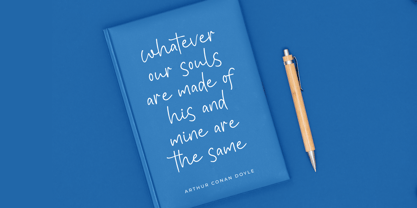 whatever
our souls
are made of
his and
mine are
the same
ARTHUR CONAN DOYLE